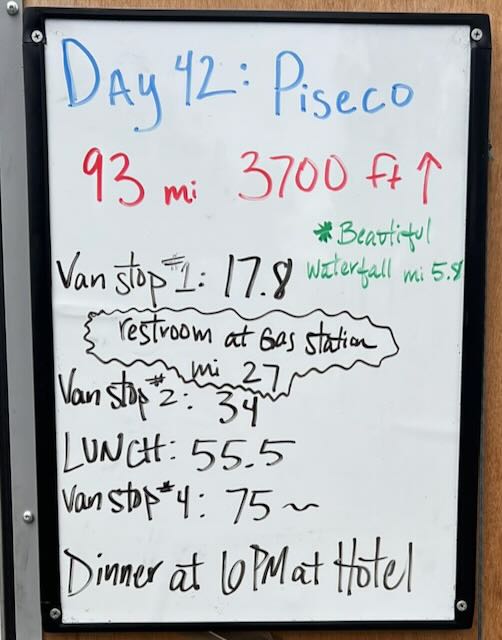 Day 42: Piseco
93 mi 3700 ft ↑
* Beautiful
Waterfall mi 5.8
Van stop #1: 17.8
restroom at Gas station
mi 27
Van stop #2: 34
LUNCH: 55.5
Van stop #4: 75 ~
Dinner at 6 PM at Hotel